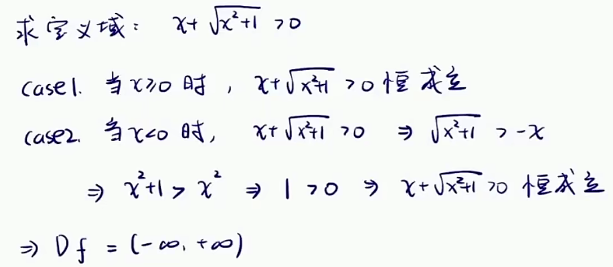 求定义域： x+√(x²+1) >0
case1. 当x≥0 时， x+√(x²+1) >0 恒成立
case2. 当x<0 时， x+√(x²+1) >0 ⇒ √(x²+1) > -x
⇒ x²+1 > x² ⇒ 1 >0 ⇒ x+√(x²+1) >0 恒成立
⇒ Df = (-∞, +∞)